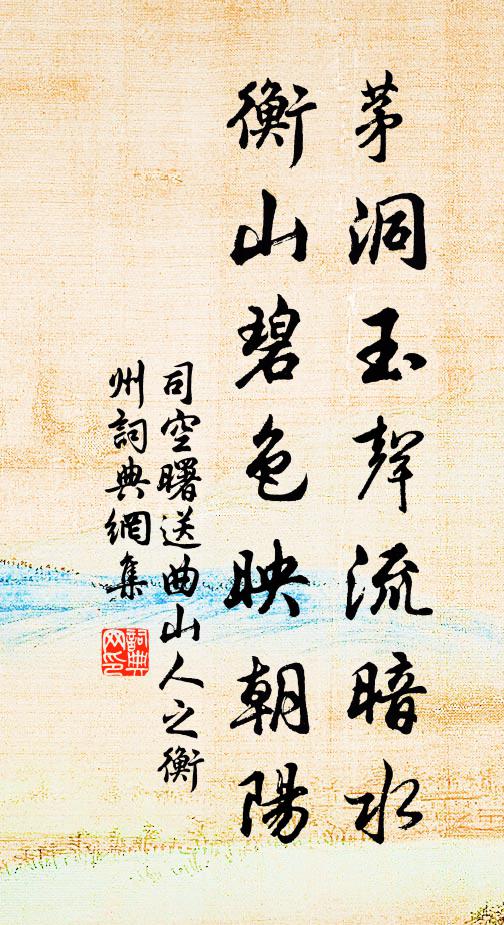 茅洞玉聲流暗水
衡山碧色映朝陽
司空曙送曲山人之衡
州詞典網集
詞典網印